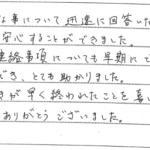 な事について迅速に回答いた
安心することができました。
連絡事項についても早期にで
でき、とても助かりました。
きが早く終われたことを喜
ありがとうございました。